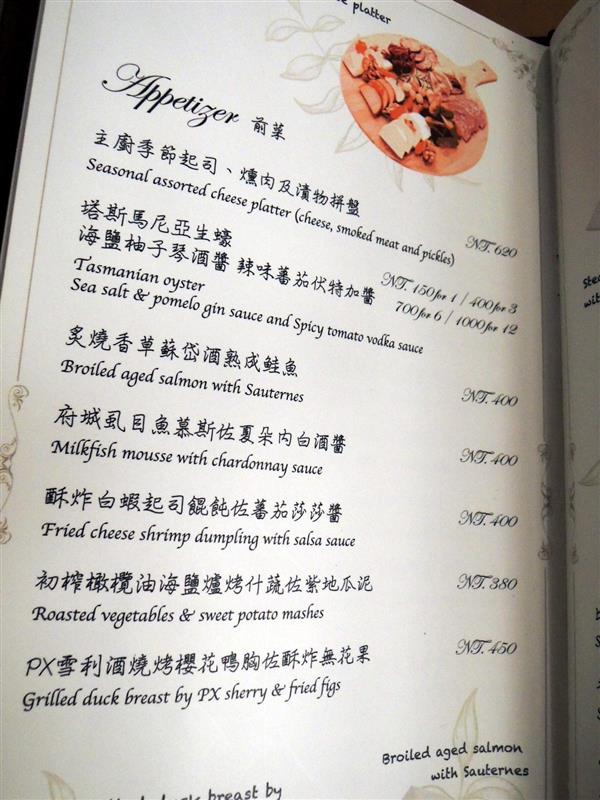 platter
Appetizer 前菜
主廚季節起司、燻肉及漬物拼盤
Seasonal assorted cheese platter (cheese, smoked meat and pickles)
NT. 620
塔斯馬尼亞生蠔
海鹽柚子琴酒醬 辣味蕃茄伏特加醬
NT. 150 for 1 / 400 for 3
Tasmanian oyster
700 for 6 / 1000 for 12
Sea salt & pomelo gin sauce and Spicy tomato vodka sauce
炙燒香草蘇岱酒熟成鮭魚
Broiled aged salmon with Sauternes
NT. 400
府城虱目魚慕斯佐夏朵內白酒醬
Milkfish mousse with chardonnay sauce
NT. 400
酥炸白蝦起司餛飩佐蕃茄莎莎醬
Fried cheese shrimp dumpling with salsa sauce
NT. 400
初榨橄欖油海鹽爐烤什蔬佐紫地瓜泥
Roasted vegetables & sweet potato mashes
NT. 380
PX雪利酒燒烤櫻花鴨胸佐酥炸無花果
Grilled duck breast by PX sherry & fried figs
NT. 450
Broiled aged salmon
with Sauternes
breast by